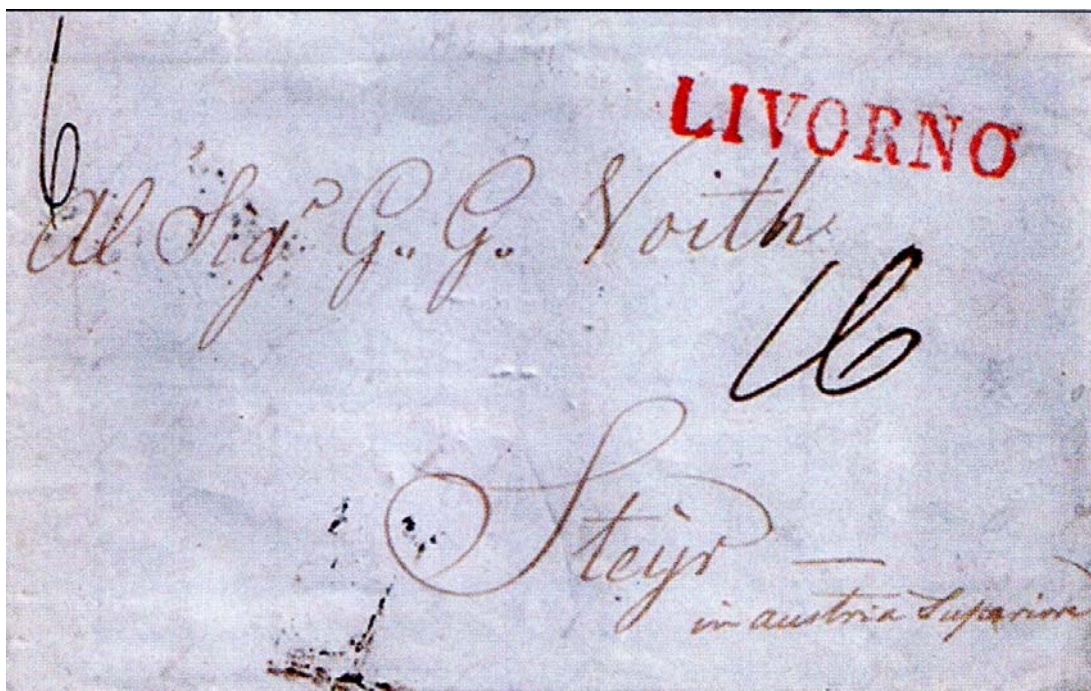 6
LIVORNO
Al Sigr G. G. Voith
16
Steyr
in austria Superiore